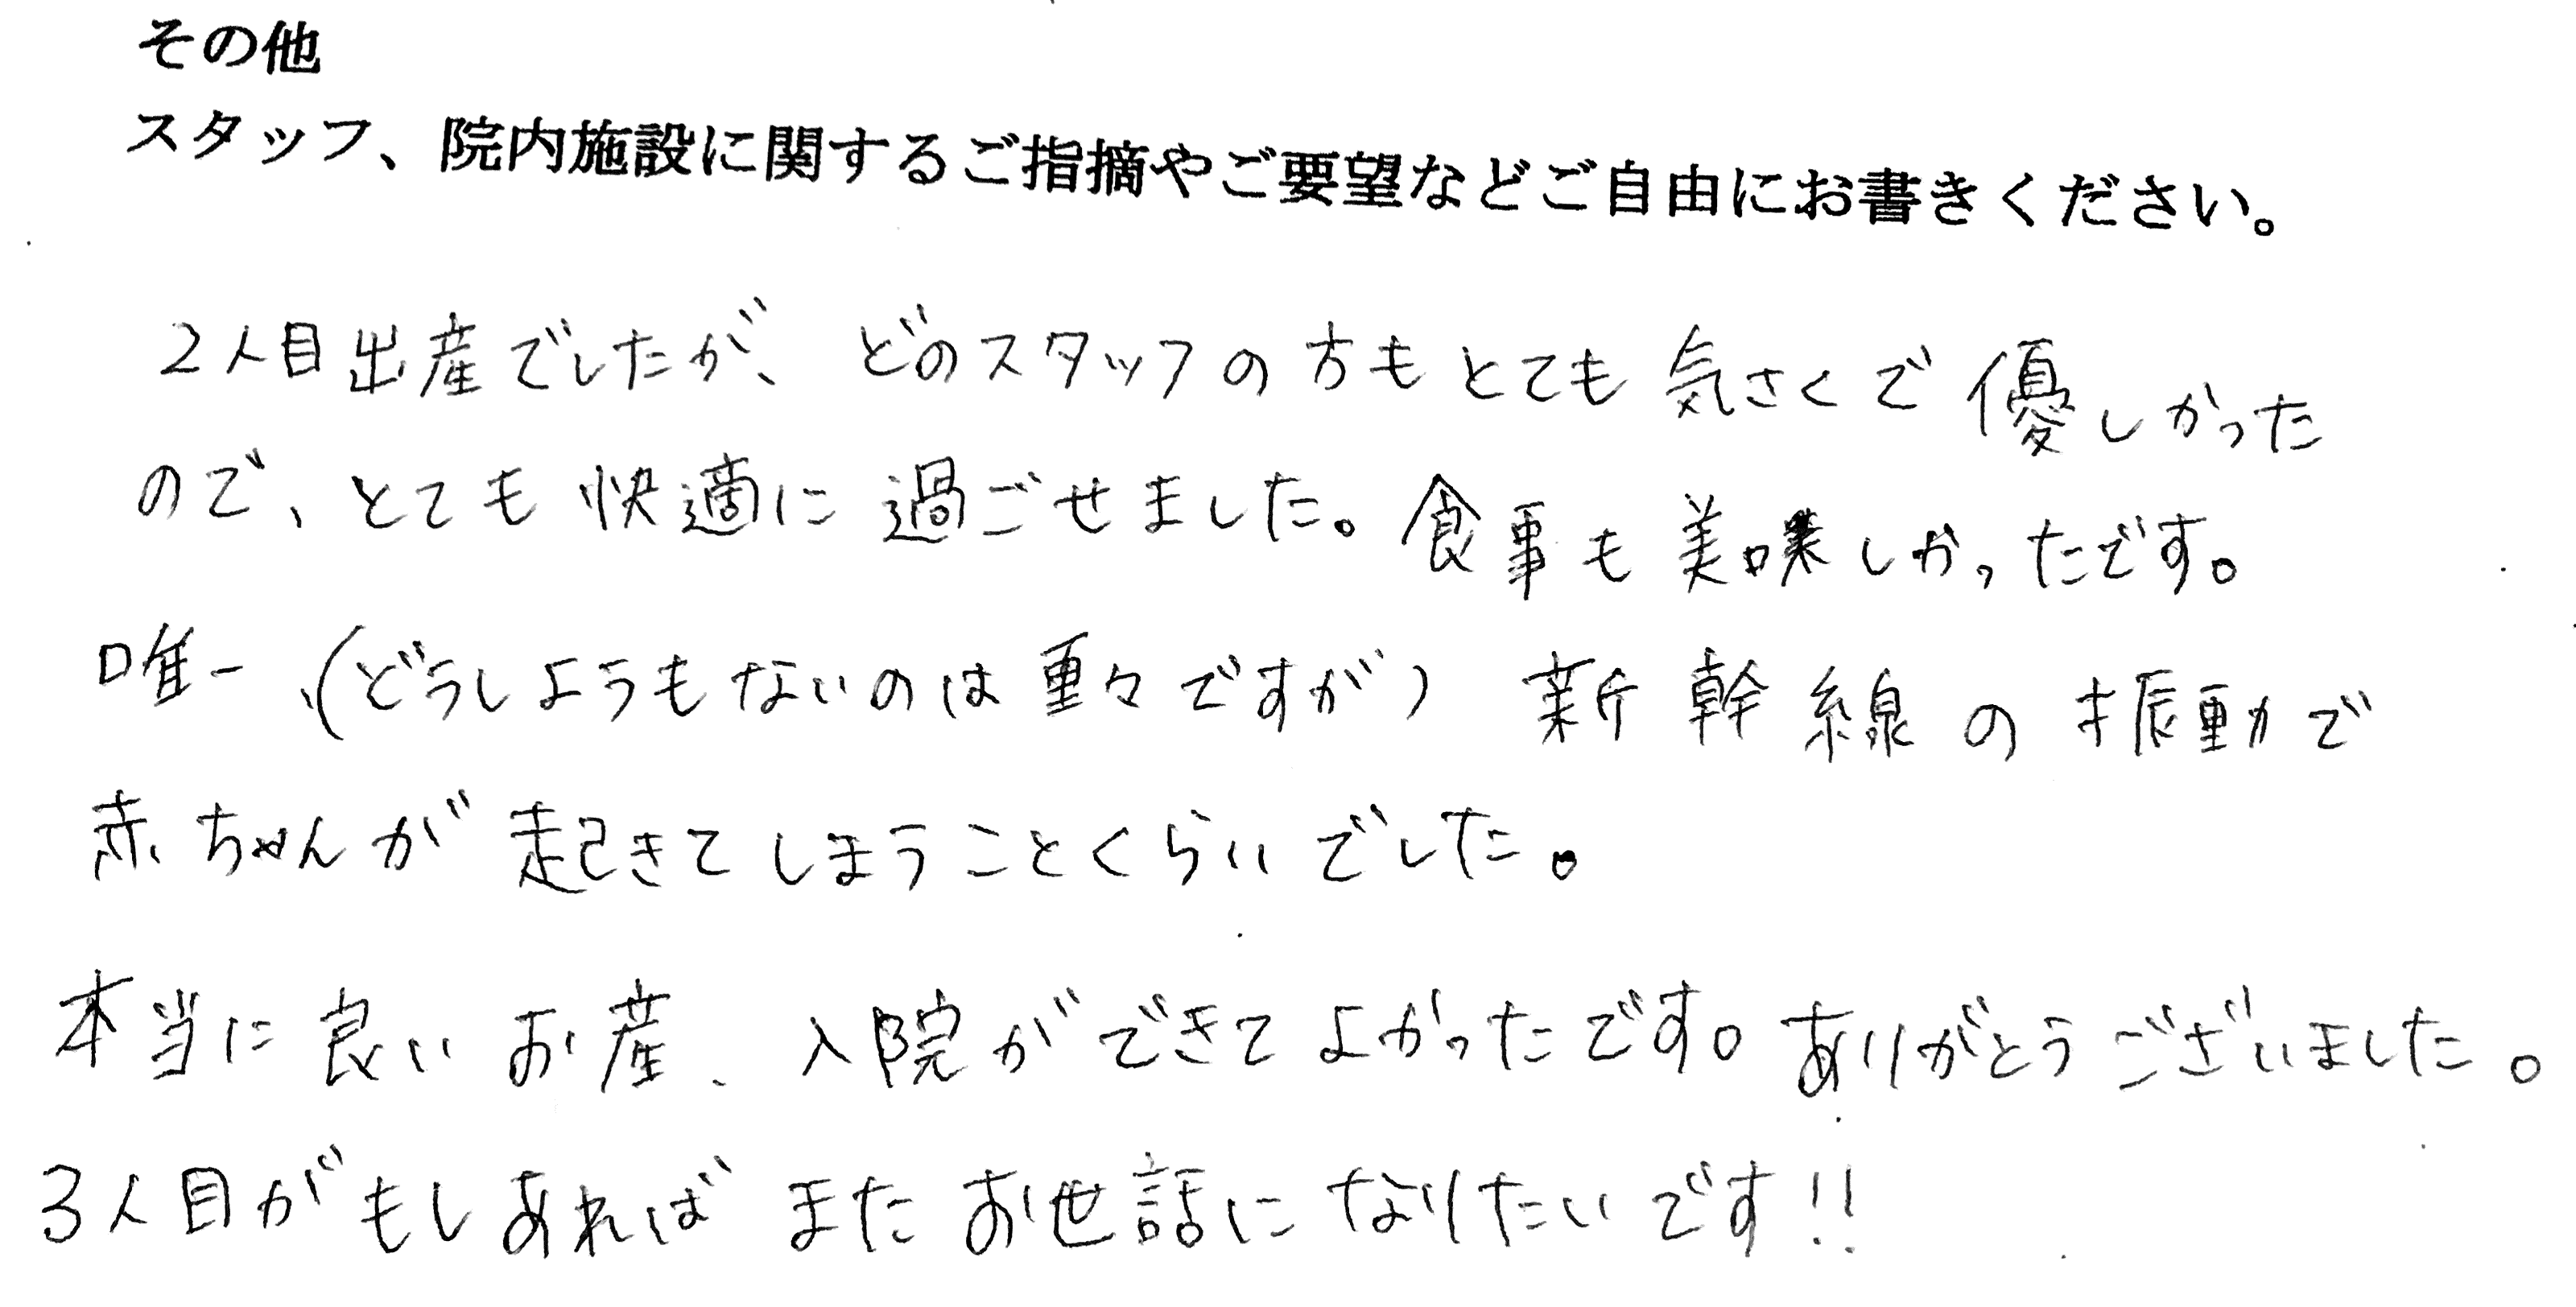 その他
スタッフ、院内施設に関するご指摘やご要望などご自由にお書きください。
2人目出産でしたが、どのスタッフの方もとても気さくで優しかった
ので、とても快適に過ごせました。食事も美味しかったです。
唯一、(どうしようもないのは重々ですが)新幹線の振動で
赤ちゃんが起きてしまうことくらいでした。
本当に良いお産、入院ができてよかったです。ありがとうございました。
3人目がもしあればまたお世話になりたいです!!